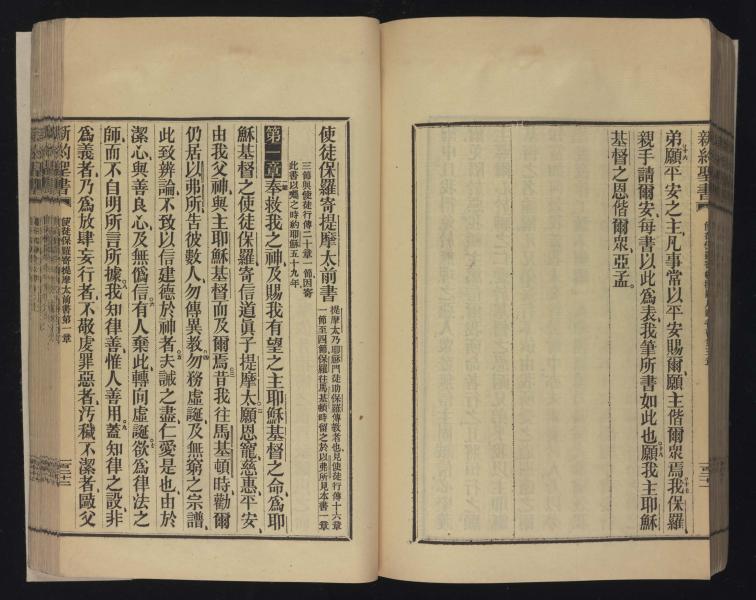 新約聖書
弟願平安之主凡事常以平安賜爾願主偕爾眾焉我保羅
親手請爾安每書以此為表我筆所書如此也願我主耶穌
基督之恩偕爾眾亞孟
使徒保羅寄提摩太前書
提摩太乃耶穌門徒助保羅傳教者也見使徒行傳十六章
一節至四節保羅往馬基頓時留之於以弗所見本書一章
三節與使徒行傳二十章一節因寄
此書以囑之時約耶穌五十九年
第一章奉救我之神及賜我有望之主耶穌基督之命為耶
穌基督之使徒保羅寄信道眞子提摩太願恩寵慈惠平安
由我父神與主耶穌基督而及爾焉昔我往馬基頓時勸爾
仍居以弗所吿彼數人勿傳異教勿務虛誕及無窮之宗譜
此致辨論不致以信建德於神者夫誡之盡仁愛是也由於
潔心與善良心及無僞信有人棄此轉向虛誕欲為律法之
師而不自明所言所據我知律善惟人善用蓋知律之設非
為義者乃為放肆妄行者不敬虔罪惡者汚穢不潔者毆父
新約聖書
使徒保羅寄提摩太前書第一章